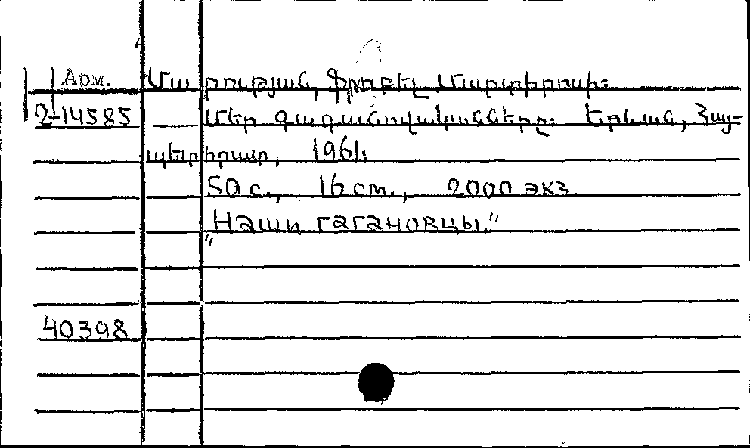 Арм. Մարության, Ֆրոբել Մարտիրոսի։
2-14585 Մեր գագանովականները։ Երևան, Հայ-
պետհրատ, 1961։
50 с., 16 см., 2000 экз.
"Наши гагановцы."
40398